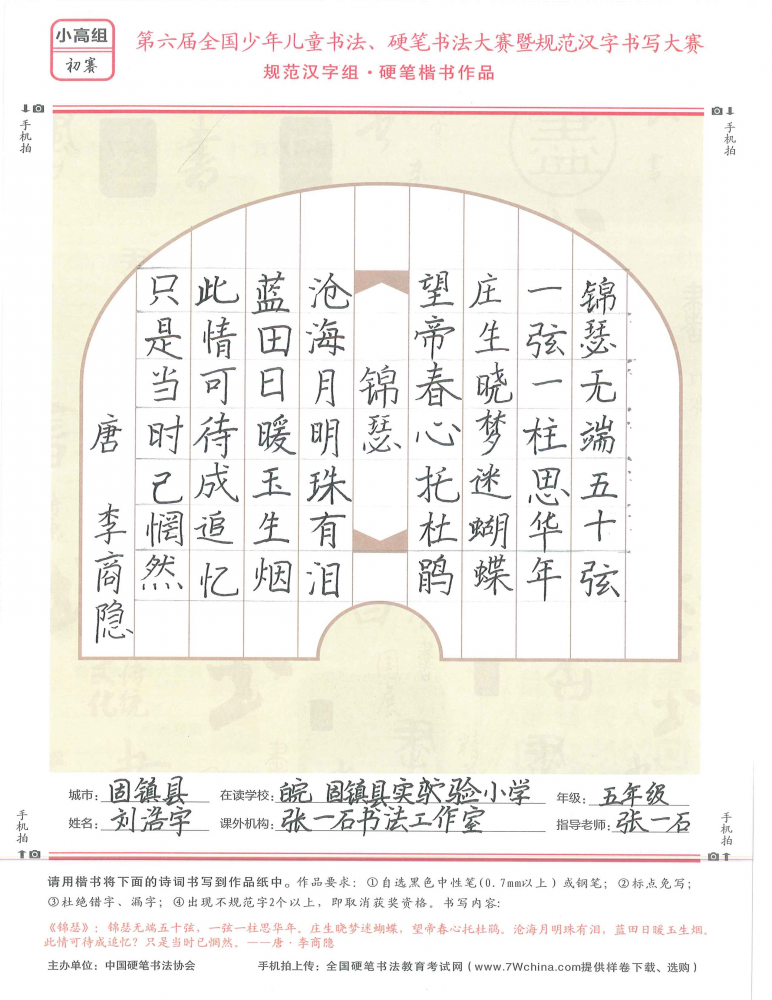 小高组
初赛
第六届全国少年儿童书法、硬笔书法大赛暨规范汉字书写大赛
规范汉字组·硬笔楷书作品
手机拍
手机拍
锦瑟无端五十弦
一弦一柱思华年
庄生晓梦迷蝴蝶
望帝春心托杜鹃
锦瑟
沧海月明珠有泪
蓝田日暖玉生烟
此情可待成追忆
只是当时已惘然
唐 李商隐
城市：固镇县 在读学校：皖 固镇县实验小学 年级：五年级
姓名：刘浩宇 课外机构：张一石书法工作室 指导老师：张一石
手机拍
手机拍
请用楷书将下面的诗词书写到作品纸中。作品要求：①自选黑色中性笔(0.7mm以上）或钢笔；②标点免写；
③杜绝错字、漏字；④出现不规范字2个以上，即取消获奖资格。书写内容：
《锦瑟》：锦瑟无端五十弦，一弦一柱思华年。庄生晓梦迷蝴蝶，望帝春心托杜鹃。沧海月明珠有泪，蓝田日暖玉生烟。
此情可待成追忆？只是当时已惘然。——唐·李商隐
主办单位：中国硬笔书法协会 手机拍上传：全国硬笔书法教育考试网（www.7Wchina.com提供样卷下载、选购）